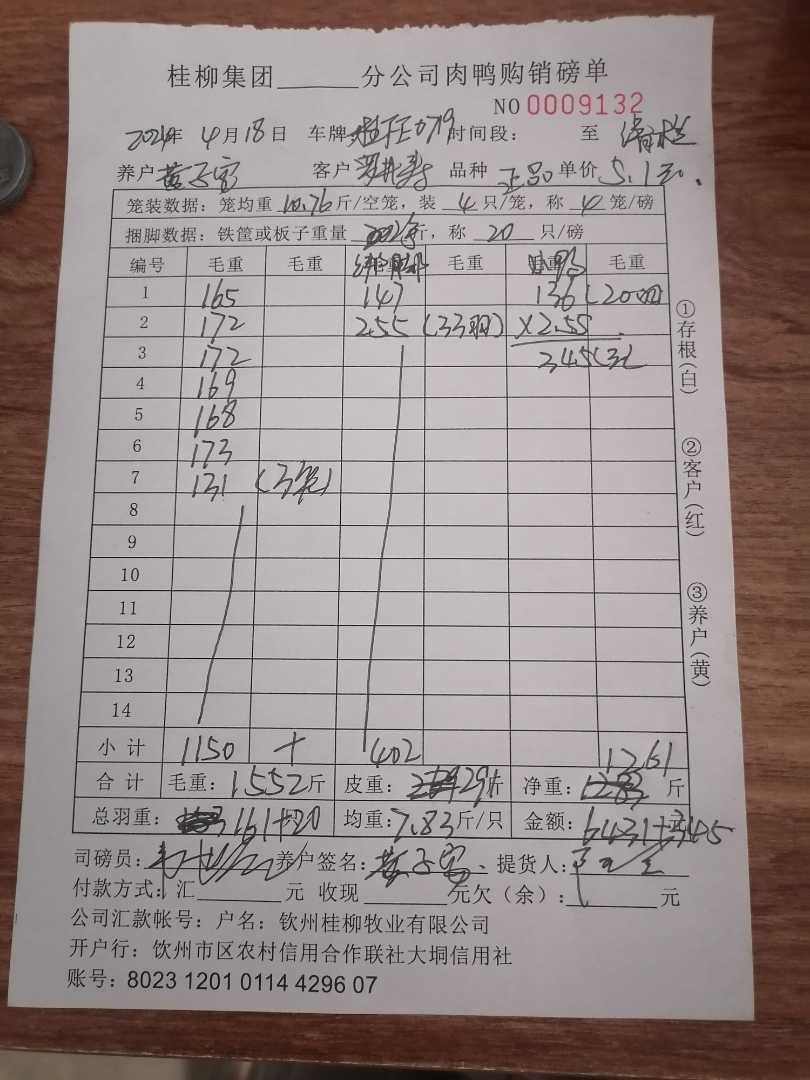 桂柳集团______分公司肉鸭购销磅单
NO 0009132
2024年 4月18日 车牌 时间段： 至 清栏
养户 黄子富 客户 品种 正品 单价 5.1元.
笼装数据：笼均重 10.76斤/空笼，装 4 只/笼，称 4 笼/磅
捆脚数据：铁筐或板子重量 斤，称 20 只/磅
编号 毛重 毛重 毛重 毛重
1 165 147 136 (20羽)
2 172 255 (33羽) ×2.55
3 172 345(元
4 169
5 168
6 173
7 131 (3笼)
8
9
10
11
12
13
14
小计 1150 + 402 1261
合计 毛重：1552斤 皮重：291斤 净重： 斤
总羽重： 161+20 均重：7.83斤/只 金额：6431+345
司磅员： 养户签名：黄子富、提货人：
付款方式：汇________元 收现________元欠（余）：________元
公司汇款帐号：户名：钦州桂柳牧业有限公司
开户行：钦州市区农村信用合作联社大垌信用社
账号：8023 1201 0114 4296 07
①存根(白)
②客户(红)
③养户(黄)